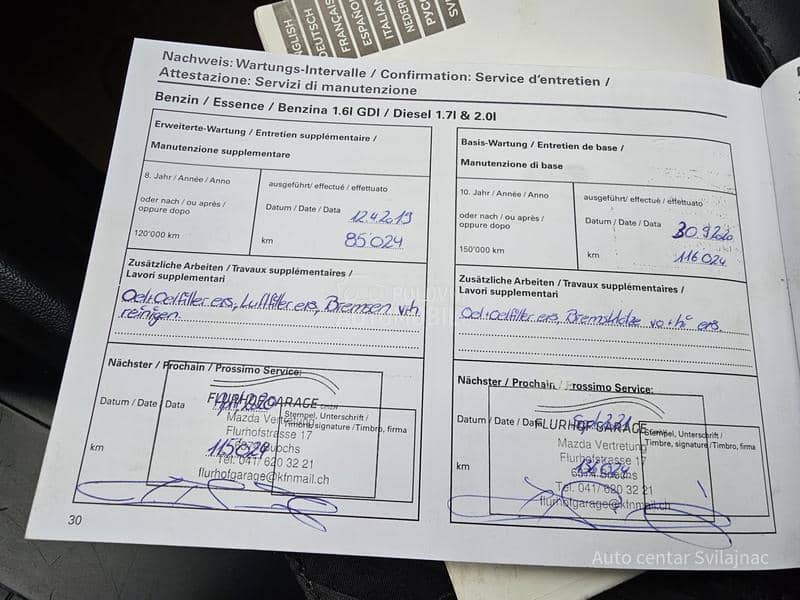 ENGLISH
DEUTSCH
FRANÇAIS
ESPAÑOL
ITALIANO
NEDER
Nachweis: Wartungs-Intervalle / Confirmation: Service d'entretien /
Attestazione: Servizi di manutenzione
Benzin / Essence / Benzina 1.6l GDI / Diesel 1.7l & 2.0l
Erweiterte-Wartung / Entretien supplémentaire /
Manutenzione supplementare
8. Jahr / Année / Anno
oder nach / ou après /
oppure dopo
120'000 km
ausgeführt / effectué / effettuato
Datum / Date / Data 12.4.2019
km 85024
Zusätzliche Arbeiten / Travaux supplémentaires /
Lavori supplementari
Oel+Oelfilter ers, Luftfilter ers, Bremsen v+h
reinigen
Nächster / Prochain / Prossimo Service:
Datum / Date / Data
km 115024
FLURHOFGARAGE
Stempel, Unterschrift /
Timbre, signature / Timbro, firma
Mazda Vertretung
Flurhofstrasse 17
Buochs
Tel. 041/ 620 32 21
flurhofgarage@kfnmail.ch
30
Basis-Wartung / Entretien de base /
Manutenzione di base
10. Jahr / Année / Anno
oder nach / ou après /
oppure dopo
150'000 km
ausgeführt / effectué / effettuato
Datum / Date / Data 30.9.2020
km 116024
Zusätzliche Arbeiten / Travaux supplémentaires /
Lavori supplementari
Oel+Oelfilter ers, Bremsklötze vo+hi ers.
Nächster / Prochain / Prossimo Service:
Datum / Date / Data
km
FLURHOFGARAGE
Stempel, Unterschrift /
Timbre, signature / Timbro, firma
Mazda Vertretung
Flurhofstrasse 17
Buochs
Tel. 041/ 620 32 21
flurhofgarage@kfnmail.ch
Auto centar Svilajnac